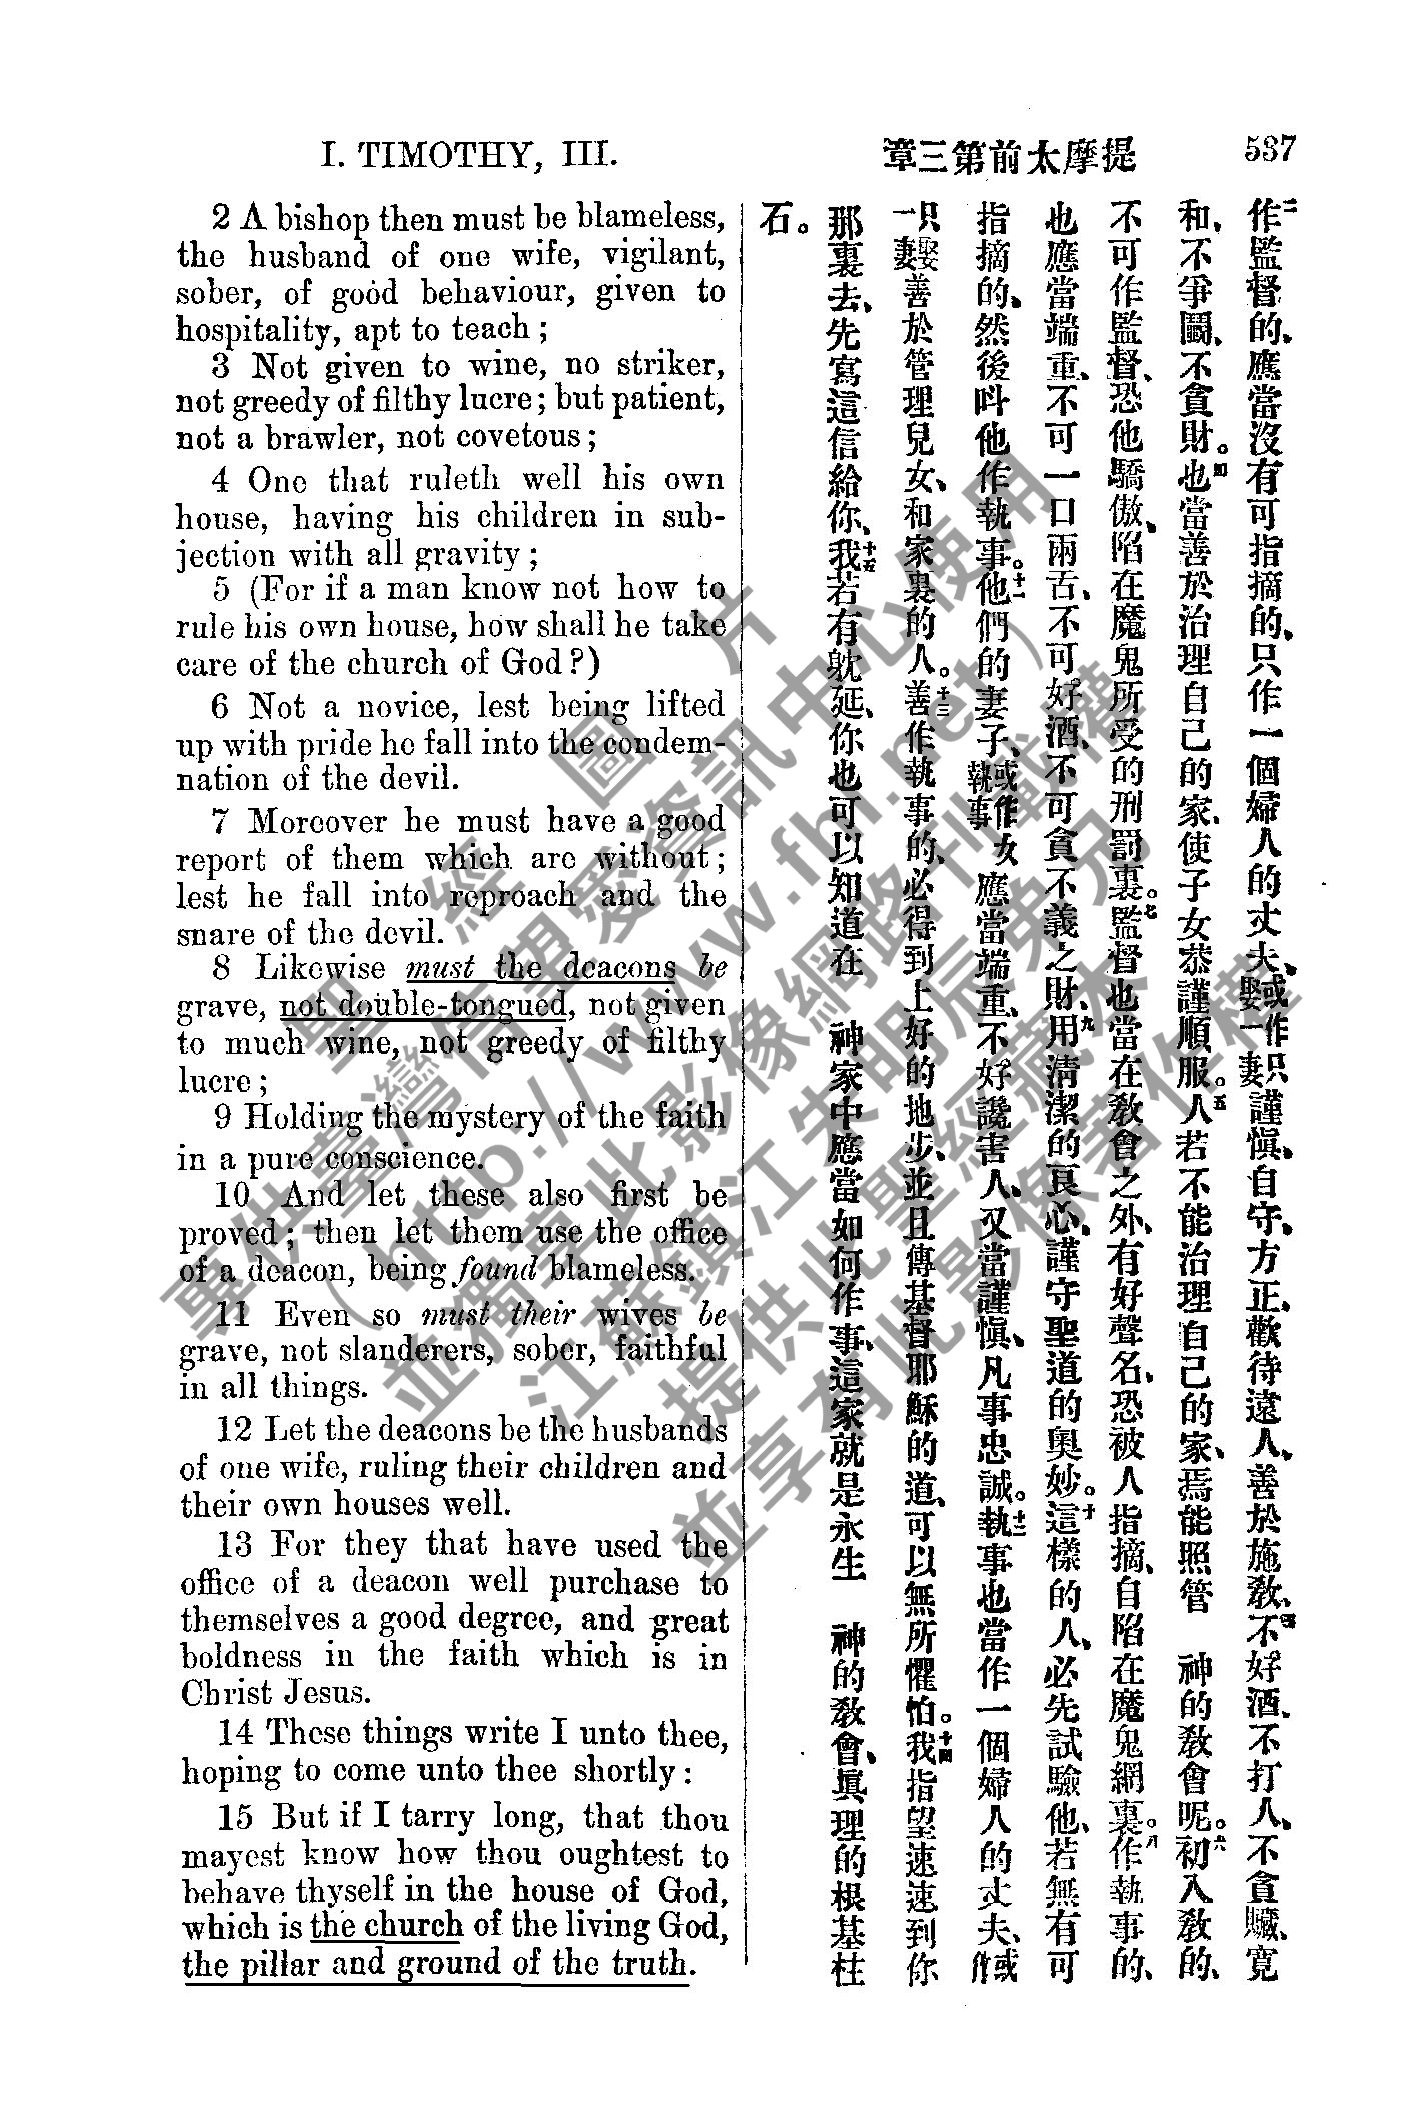 I. TIMOTHY, III.
提摩太前第三章
537
2 A bishop then must be blameless,
the husband of one wife, vigilant,
sober, of good behaviour, given to
hospitality, apt to teach;
3 Not given to wine, no striker,
not greedy of filthy lucre; but patient,
not a brawler, not covetous;
4 One that ruleth well his own
house, having his children in sub-
jection with all gravity;
5 (For if a man know not how to
rule his own house, how shall he take
care of the church of God?)
6 Not a novice, lest being lifted
up with pride he fall into the condem-
nation of the devil.
7 Moreover he must have a good
report of them which are without;
lest he fall into reproach and the
snare of the devil.
8 Likewise must the deacons be
grave, not double-tongued, not given
to much wine, not greedy of filthy
lucre;
9 Holding the mystery of the faith
in a pure conscience.
10 And let these also first be
proved; then let them use the office
of a deacon, being found blameless.
11 Even so must their wives be
grave, not slanderers, sober, faithful
in all things.
12 Let the deacons be the husbands
of one wife, ruling their children and
their own houses well.
13 For they that have used the
office of a deacon well purchase to
themselves a good degree, and great
boldness in the faith which is in
Christ Jesus.
14 These things write I unto thee,
hoping to come unto thee shortly:
15 But if I tarry long, that thou
mayest know how thou oughtest to
behave thyself in the house of God,
which is the church of the living God,
the pillar and ground of the truth.
二作監督的、應當沒有可指摘的、只作一個婦人的丈夫、或作只娶一妻謹愼、自守、方正、歡待遠人、善於施敎、不好酒、不打人、不貪贓、寬
和、不爭鬭、不貪財。四也當善於治理自己的家、使子女恭謹順服。五人若不能治理自己的家、焉能照管 神的敎會呢。六初入敎的、
不可作監督、恐他驕傲、陷在魔鬼所受的刑罰裏。七監督也當在敎會之外、有好聲名、恐被人指摘、自陷在魔鬼網裏。八作執事的、
也應當端重、不可一口兩舌、不可好酒、不可貪不義之財、九用淸潔的良心、謹守聖道的奧妙。十這樣的人、必先試驗他、若無有可
指摘的、然後呌他作執事。十一他們的妻子、或作女執事應當端重、不好讒害人、又當謹愼、凡事忠誠。十二執事也當作一個婦人的丈夫、或作
只娶一妻善於管理兒女、和家裏的人。十三善作執事的、必得到上好的地步、並且傳基督耶穌的道、可以無所懼怕。十四我指望速速到你
那裏去、先寫這信給你、十五我若有躭延、你也可以知道在 神家中應當如何作事、這家就是永生 神的敎會、眞理的根基柱
石。
聖經圖片
專供臺灣信望愛資訊中心使用
(http://www.fhl.net)
並獨享此影像網路刊載權
江蘇鎮江朱朋辰弟兄
提供此聖經藏本
並享有此影像著作權